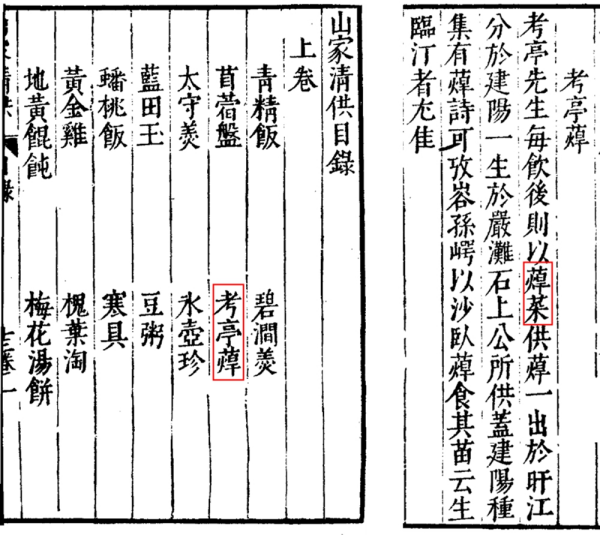 山家清供目錄
上卷
青精飯　碧澗羮
苜蓿盤　考亭蔊
太守羮　氷壺珍
藍田玉　豆粥
蟠桃飯　寒具
黃金雞　槐葉淘
地黃餛飩　梅花湯餅
考亭蔊
考亭先生每飲後則以蔊菜供蔊一出於盱江
分於建陽一生於嚴灘石上公所供蓋建陽種
集有蔊詩可攷峇孫崿以沙臥蔊食其苗云生
臨汀者尤佳